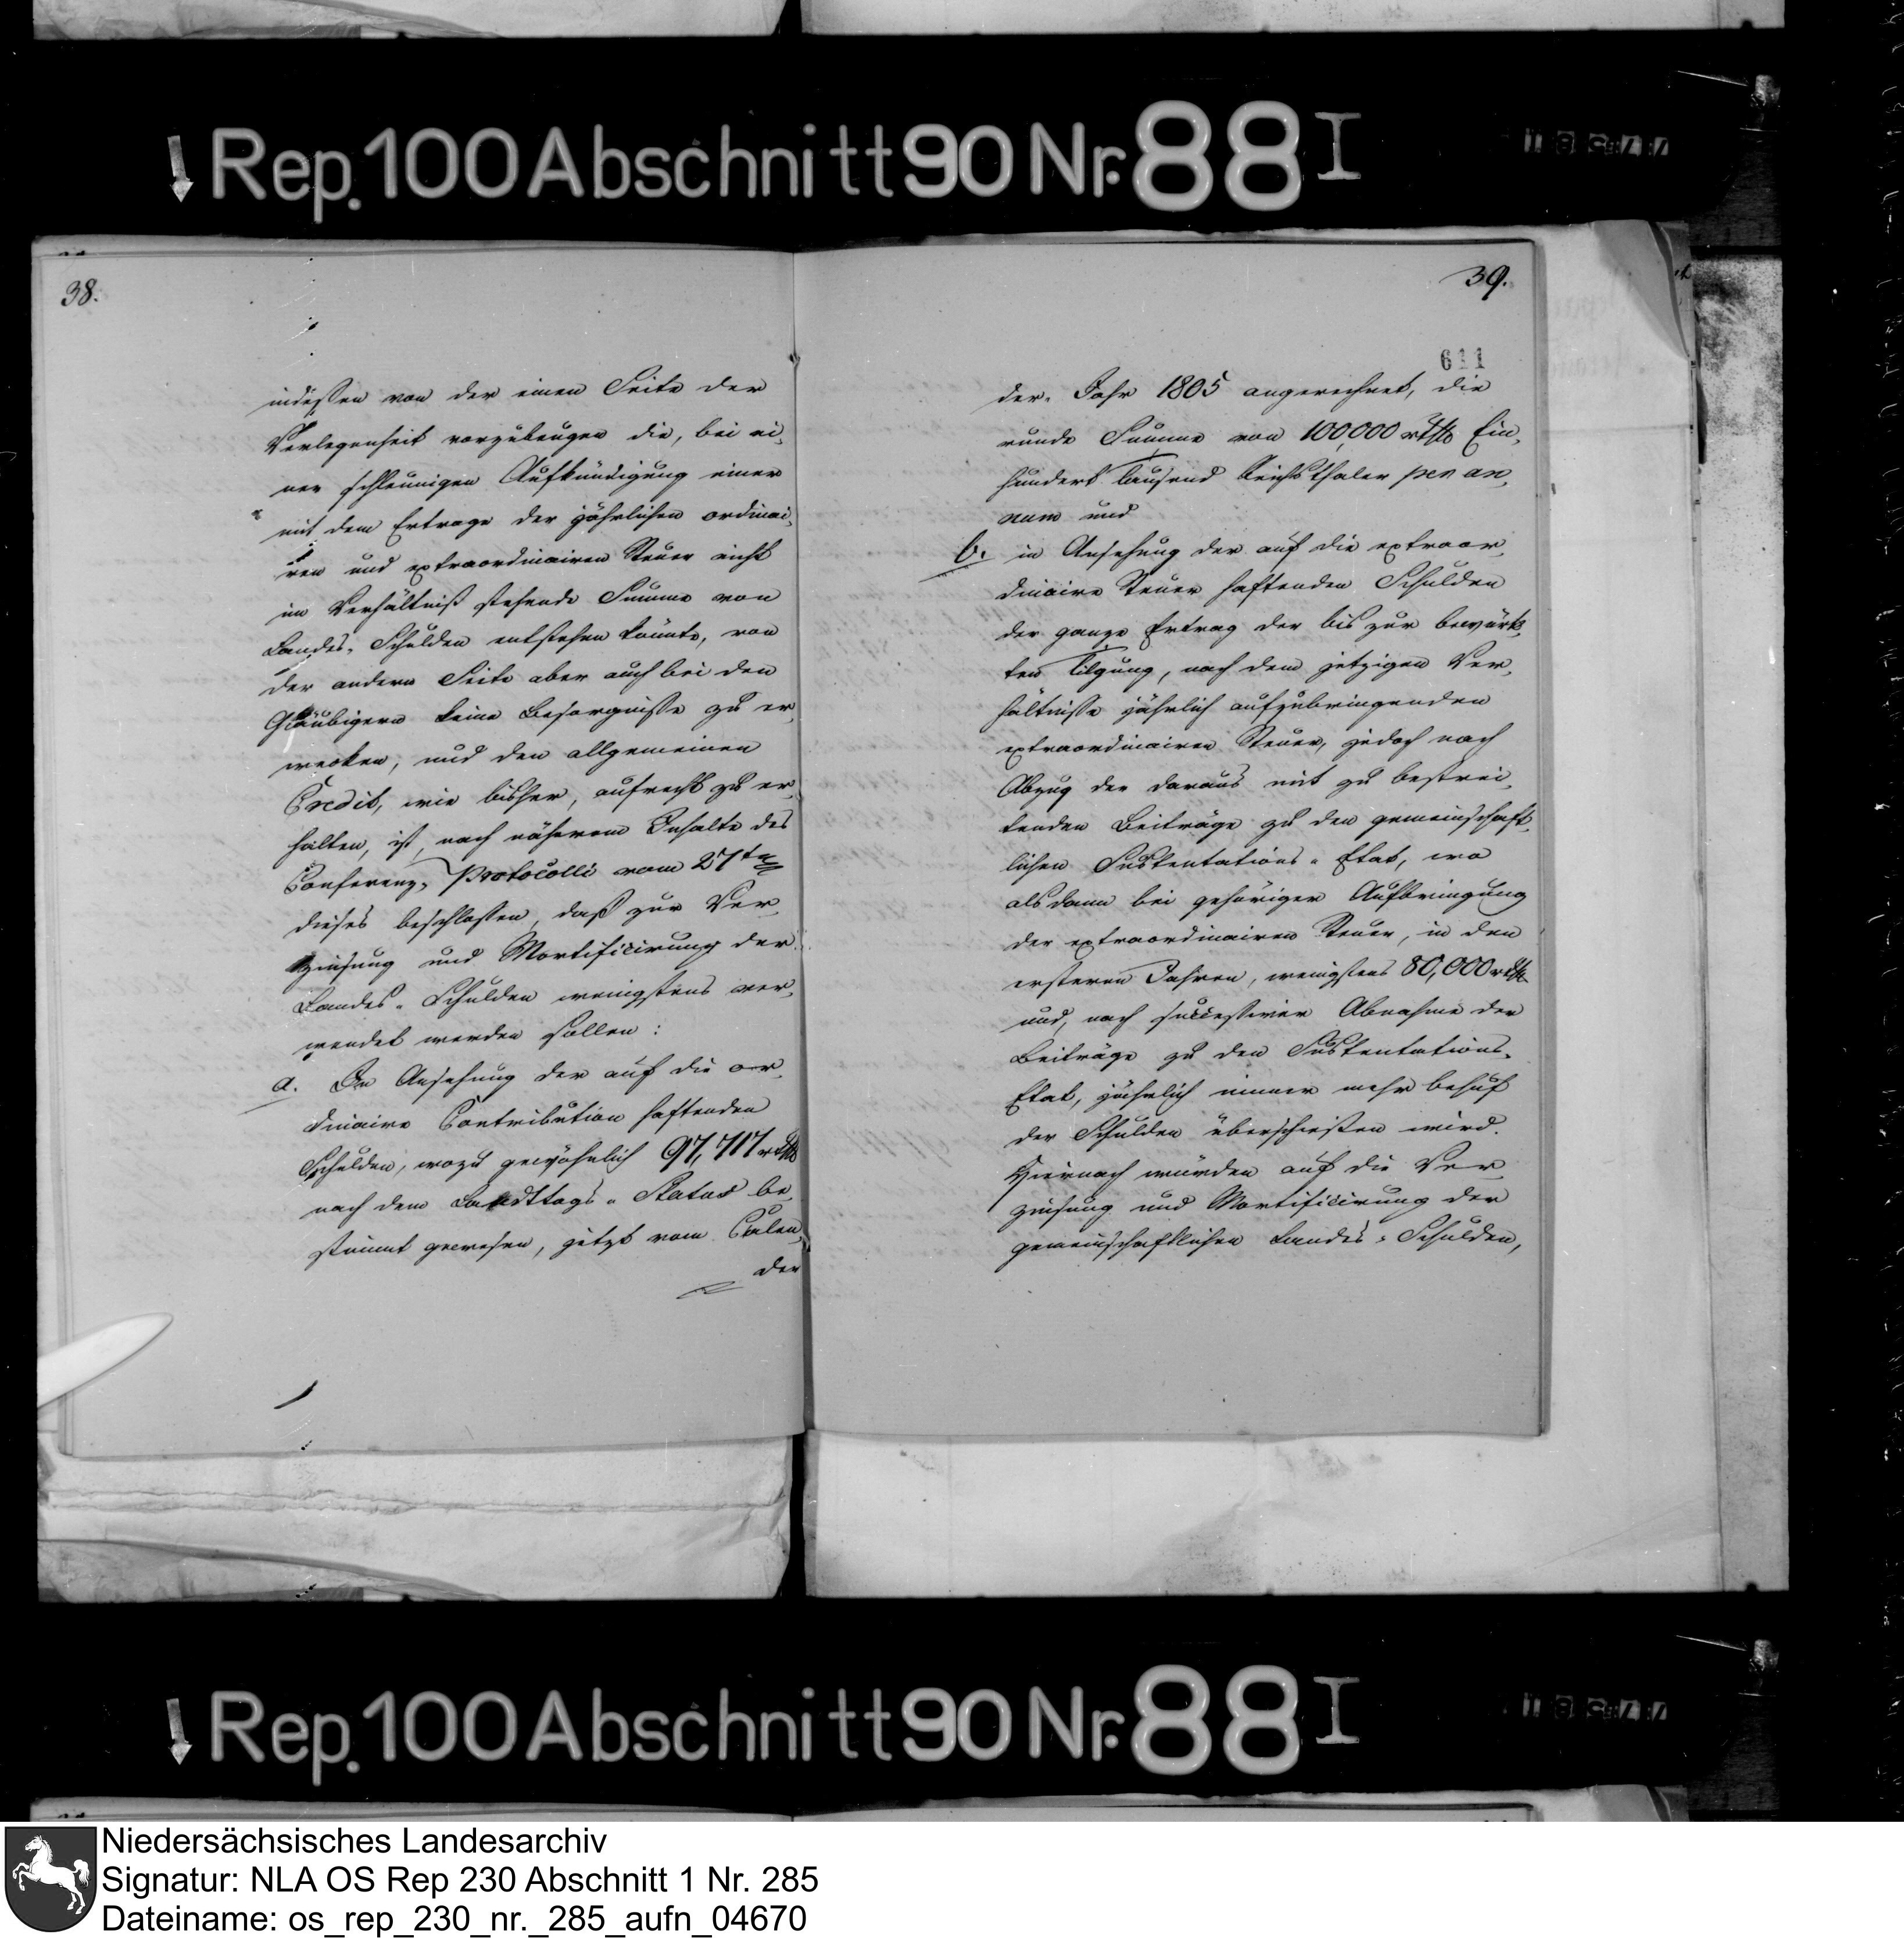 Rep. 100 Abschnitt 90 Nr. 88 I
38.
indessen von der einen Seite der
Verlegenheit vorzubeugen die, bei ei-
ner schleunigen Aufkündigung einer
mit dem Ertrage der jährlichen ordinai-
ren und extraordinairen Steuer nicht
im Verhältniß stehende Summe von
Landes-Schulden entstehen könnte, von
der andern Seite aber auch bei den
Gläubigern keine Besorgnisse zu er-
wecken, und den allgemeinen
Credit, wie bisher, aufrecht zu er-
halten, ist, nach näherem Inhalte des
Conferenz-Protocolli vom 27ten
dieses beschlossen, daß zur Ver-
zinsung und Mortificirung der
Landes-Schulden wenigstens ver-
wendet werden sollen:
a. In Ansehung der auf die or-
dinaire Contribution haftenden
Schulden, wozu gewöhnlich 97,717 rthlr
nach dem Landttags-Status be-
stimmt gewesen, jetzt vom Calen-
der
39.
611
der-Jahr 1805 angerechnet, die
runde Summe von 100,000 rthlr Ein-
hundert Tausend Reichsthaler per an-
num und
b. in Ansehung der auf die extraor-
dinaire Steuer haftenden Schulden
der ganze Ertrag der bis zur bewürk-
ten Tilgung, nach dem jetzigen Ver-
hältnisse jährlich aufzubringenden
extraordinairen Steuer, jedoch nach
Abzug der daraus mit zu bestrei-
tenden Beiträge zu den gemeinschaft-
lichen Sustentations-Etat, wo
alsdann bei gehöriger Aufbringung
der extraordinairen Steuer, in den
ersteren Jahren, wenigstens 80,000 rthlr
und, nach successiver Abnahme der
Beiträge zu den Sustentations-
Etat, jährlich immer mehr behuf
der Schulden überschießen wird.
Hiernach würden auf die Ver-
zinsung und Mortificirung der
gemeinschaftlichen Landes-Schulden,
Rep. 100 Abschnitt 90 Nr. 88 I
Niedersächsisches Landesarchiv
Signatur: NLA OS Rep 230 Abschnitt 1 Nr. 285
Dateiname: os_rep_230_nr._285_aufn_04670